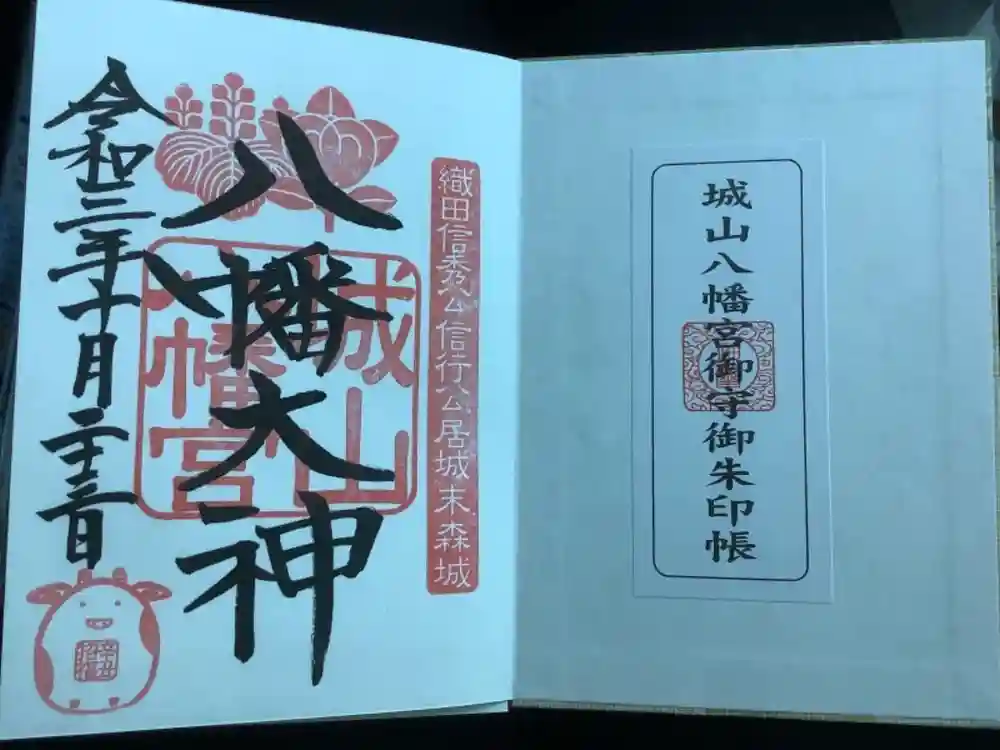 城山八幡宮御守御朱印帳
織田信秀公信行公居城末森城
八幡大神
城山
八幡宮
令和三年十月二十三日